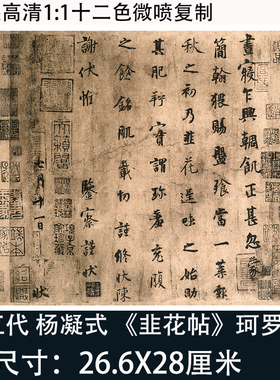 高清1:1十二色微喷复制
晝寢乍興輖飢正甚忽蒙
簡翰猥賜盤飧當一葉報
秋之初乃韭花逞味之始助
其肥羜實謂珍羞充腹
之餘銘肌載切謹修狀陳
謝伏惟 鑒察謹狀
七月十一日 狀
五代 杨凝式 《韭花帖》珂罗
尺寸：26.6X28厘米